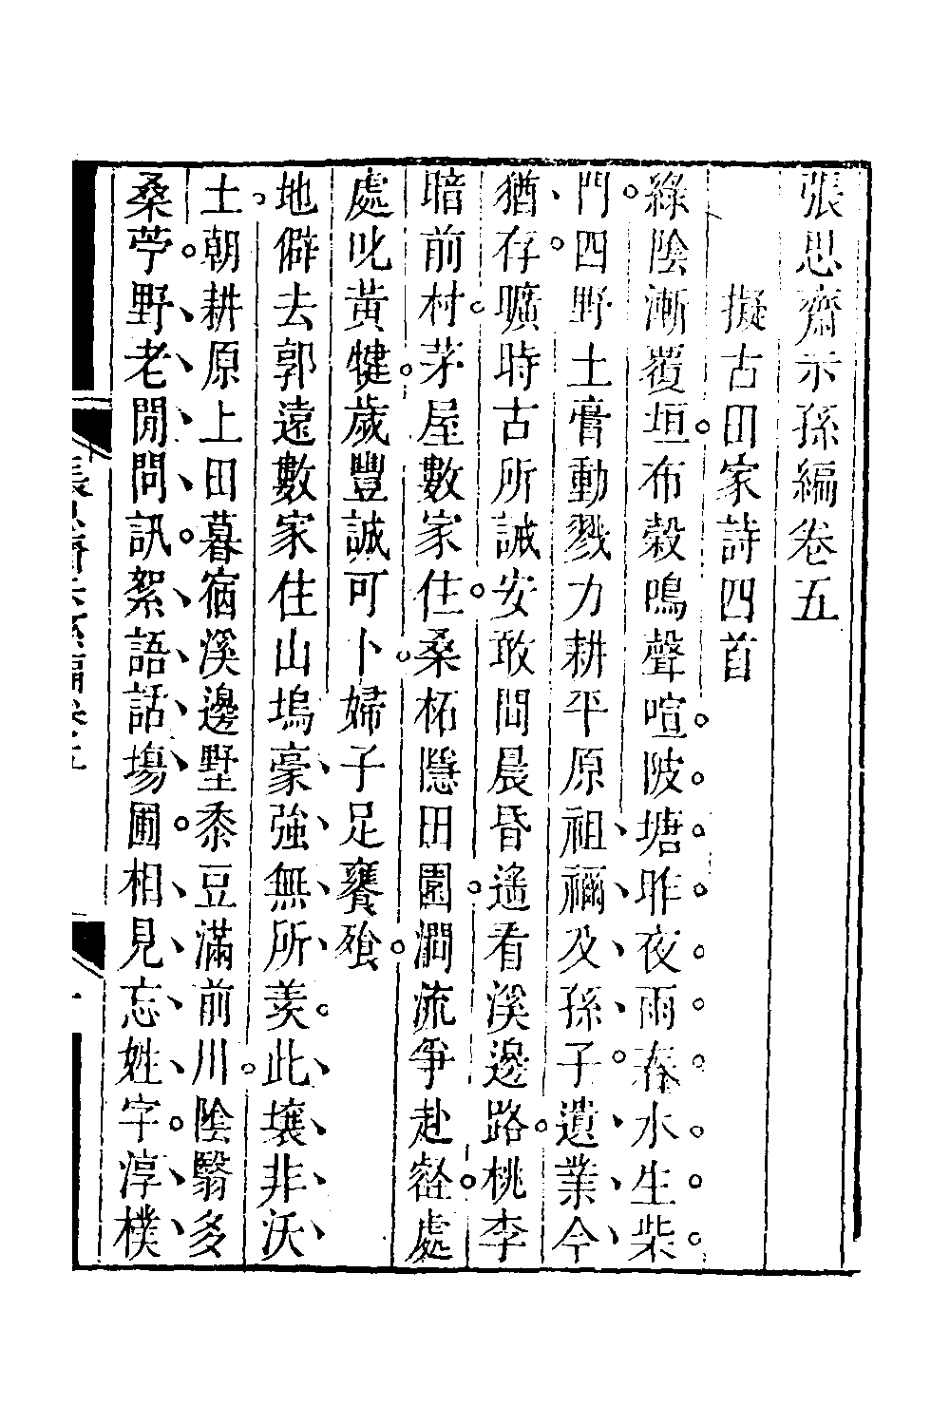 張思齋示孫編卷五
擬古田家詩四首
綠陰漸覆垣布穀鳴聲喧陂塘昨夜雨春水生柴
門四野土膏動戮力耕平原祖禰及孫子遺業今
猶存曠時古所誡安敢閒晨昏遙看溪邊路桃李
暗前村茅屋數家住桑柘隱田園澗流爭赴壑處
處叱黃犍歲豐誠可卜婦子足饔飧
地僻去郭遠數家住山塢豪強無所羨此壤非沃
土朝耕原上田暮宿溪邊墅黍豆滿前川陰翳多
桑苧野老閒問訊絮語話塲圃相見忘姓字淳樸
張思齋示孫編卷五
一